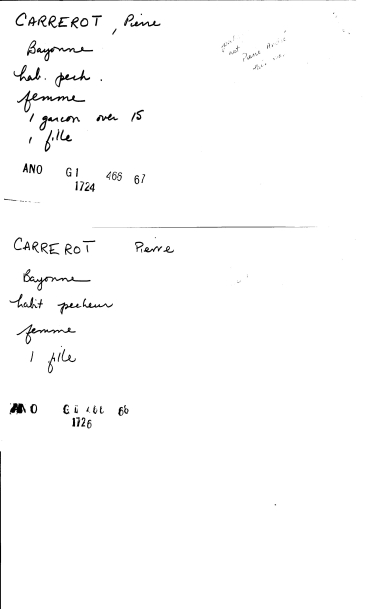 CARREROT, Pierre
Bayonne
hab. pech.
femme
1 garcon over 15
1 fille
ANO G1 466 67
1724
CARREROT Pierre
Bayonne
habit pecheur
femme
1 fille
ANO G 466 66
1726